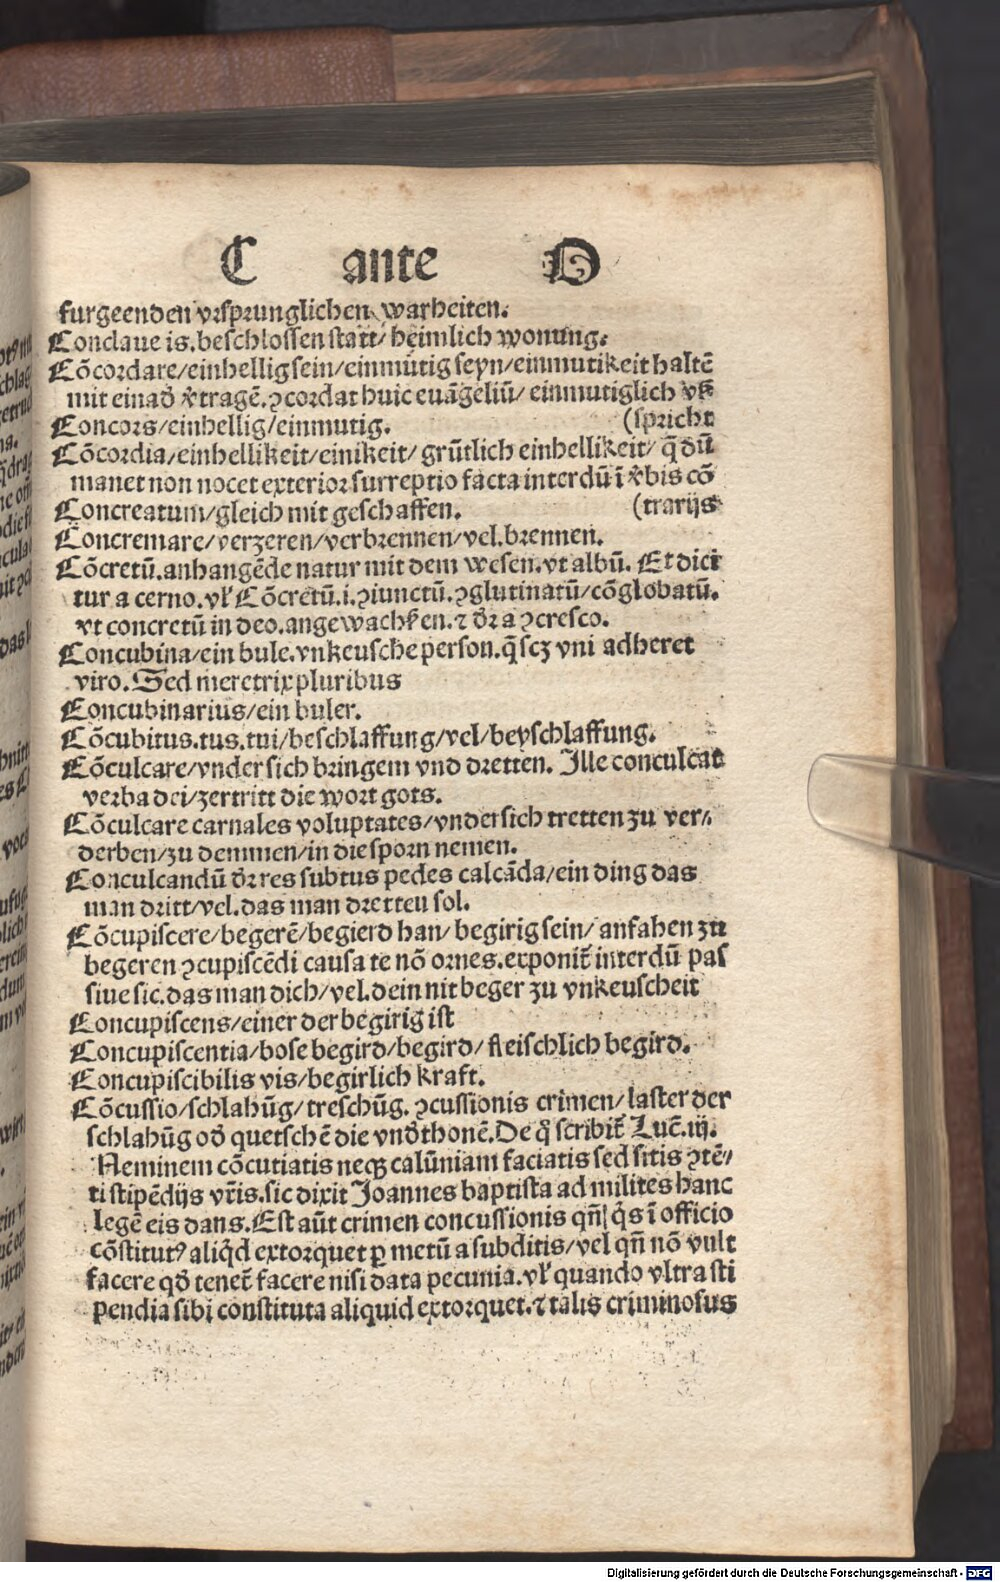 C ante D
furgeenden vrsprunglichen warheiten.
Conclaue is. beschlossen statt/ heimlich wonung.
Cōcordare/einhellig sein/einmütig seyn/einmutikeit haltē
mit einad᷑ v᷑tragē. ꝯcordat huic euāgeliū/ einmutiglich vk᷑
Concors/einhellig/einmutig. (spricht
Cōcordia/einhellikeit/einikeit/ grūtlich einhellikeit/ q̄ dū
manet non nocet exterior surreptio facta interdū ī v᷑bis cō
Concreatum/gleich mit geschaffen. (trarijs
Concremare/verzeren/verbrennen/vel.brennen.
Cōcretū.anhangēde natur mit dem wesen.vt albū. Et dici
tur a cerno.vl᷑ Cōcretū.i.ꝯiunctū.ꝯglutinatū/cōglobatū.
vt concretū in deo.angewachsen.⁊ dr᷑ a ꝯcresco.
Concubina/ein bule.vnkeusche person.q̄ scꝫ vni adheret
viro. Sed meretrix pluribus
Concubinarius/ein buler.
Cōcubitus.tus.tui/beschlaffung/vel/beyschlaffung.
Cōculcare/vnder sich bringem vnd dretten. Ille conculcat
verba dei/zertritt die wort gots.
Cōculcare carnales voluptates/vnder sich tretten zu ver⸗
derben/zu demmen/in die sporn nemen.
Conculcandū dr᷑ res subtus pedes calcāda/ein ding das
man dritt/vel.das man dretten sol.
Cōcupiscere/begerē/begierd han/ begirig sein/ anfahen zu
begeren ꝯcupiscēdi causa te nō ornes.exponit᷑ interdū pas
siue sic.das man dich/vel.dein nit beger zu vnkeuscheit
Concupiscens/einer der begirig ist
Concupiscentia/bose begird/begird/ fleischlich begird.
Concupiscibilis vis/begirlich kraft.
Cōcussio/schlahūg/treschūg. ꝯcussionis crimen/ laster der
schlahūg od᷑ quetschē die vnd᷑thonē.De q̊ scribit᷑ Lucē.iij.
Neminem cōcutiatis neqꝫ calūniam faciatis sed sitis ꝯtē⸗
ti stipēdijs vr̄is.sic dixit Joannes baptista ad milites hanc
legē eis dans.Est aūt crimen concussionis qn̄ q̇s ī officio
cōstitutꝰ aliq̇d extorquet ꝑ metū a subditis/vel qn̄ nō vult
facere qd᷑ tenet᷑ facere nisi data pecunia.vl᷑ quando vltra sti
pendia sibi constituta aliquid extorquet.⁊ talis criminosus
Digitalisierung gefördert durch die Deutsche Forschungsgemeinschaft - DFG